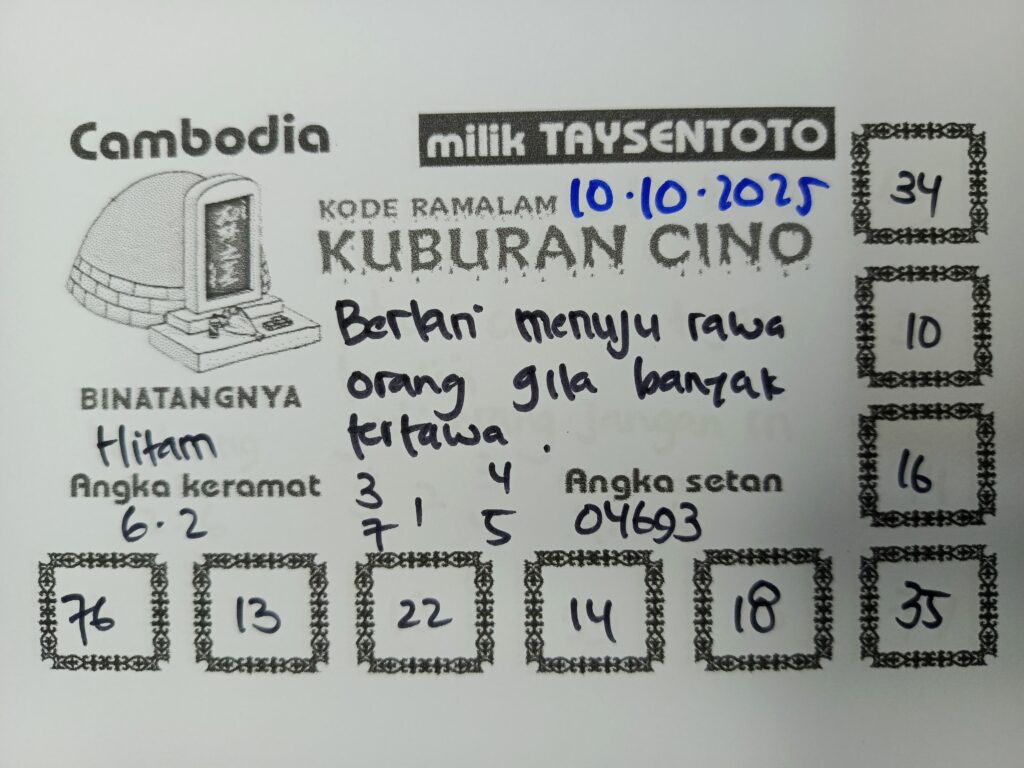 Cambodia
milik TAYSENTOTO
KODE RAMALAM 10.10.2025
KUBURAN CINO
34
Berlari menuju rawa
orang gila banyak
tertawa.
10
BINATANGNYA
Hitam
Angka keramat
6.2
3 4
1
7 5
Angka setan
04693
16
76 13 22 14 18 35